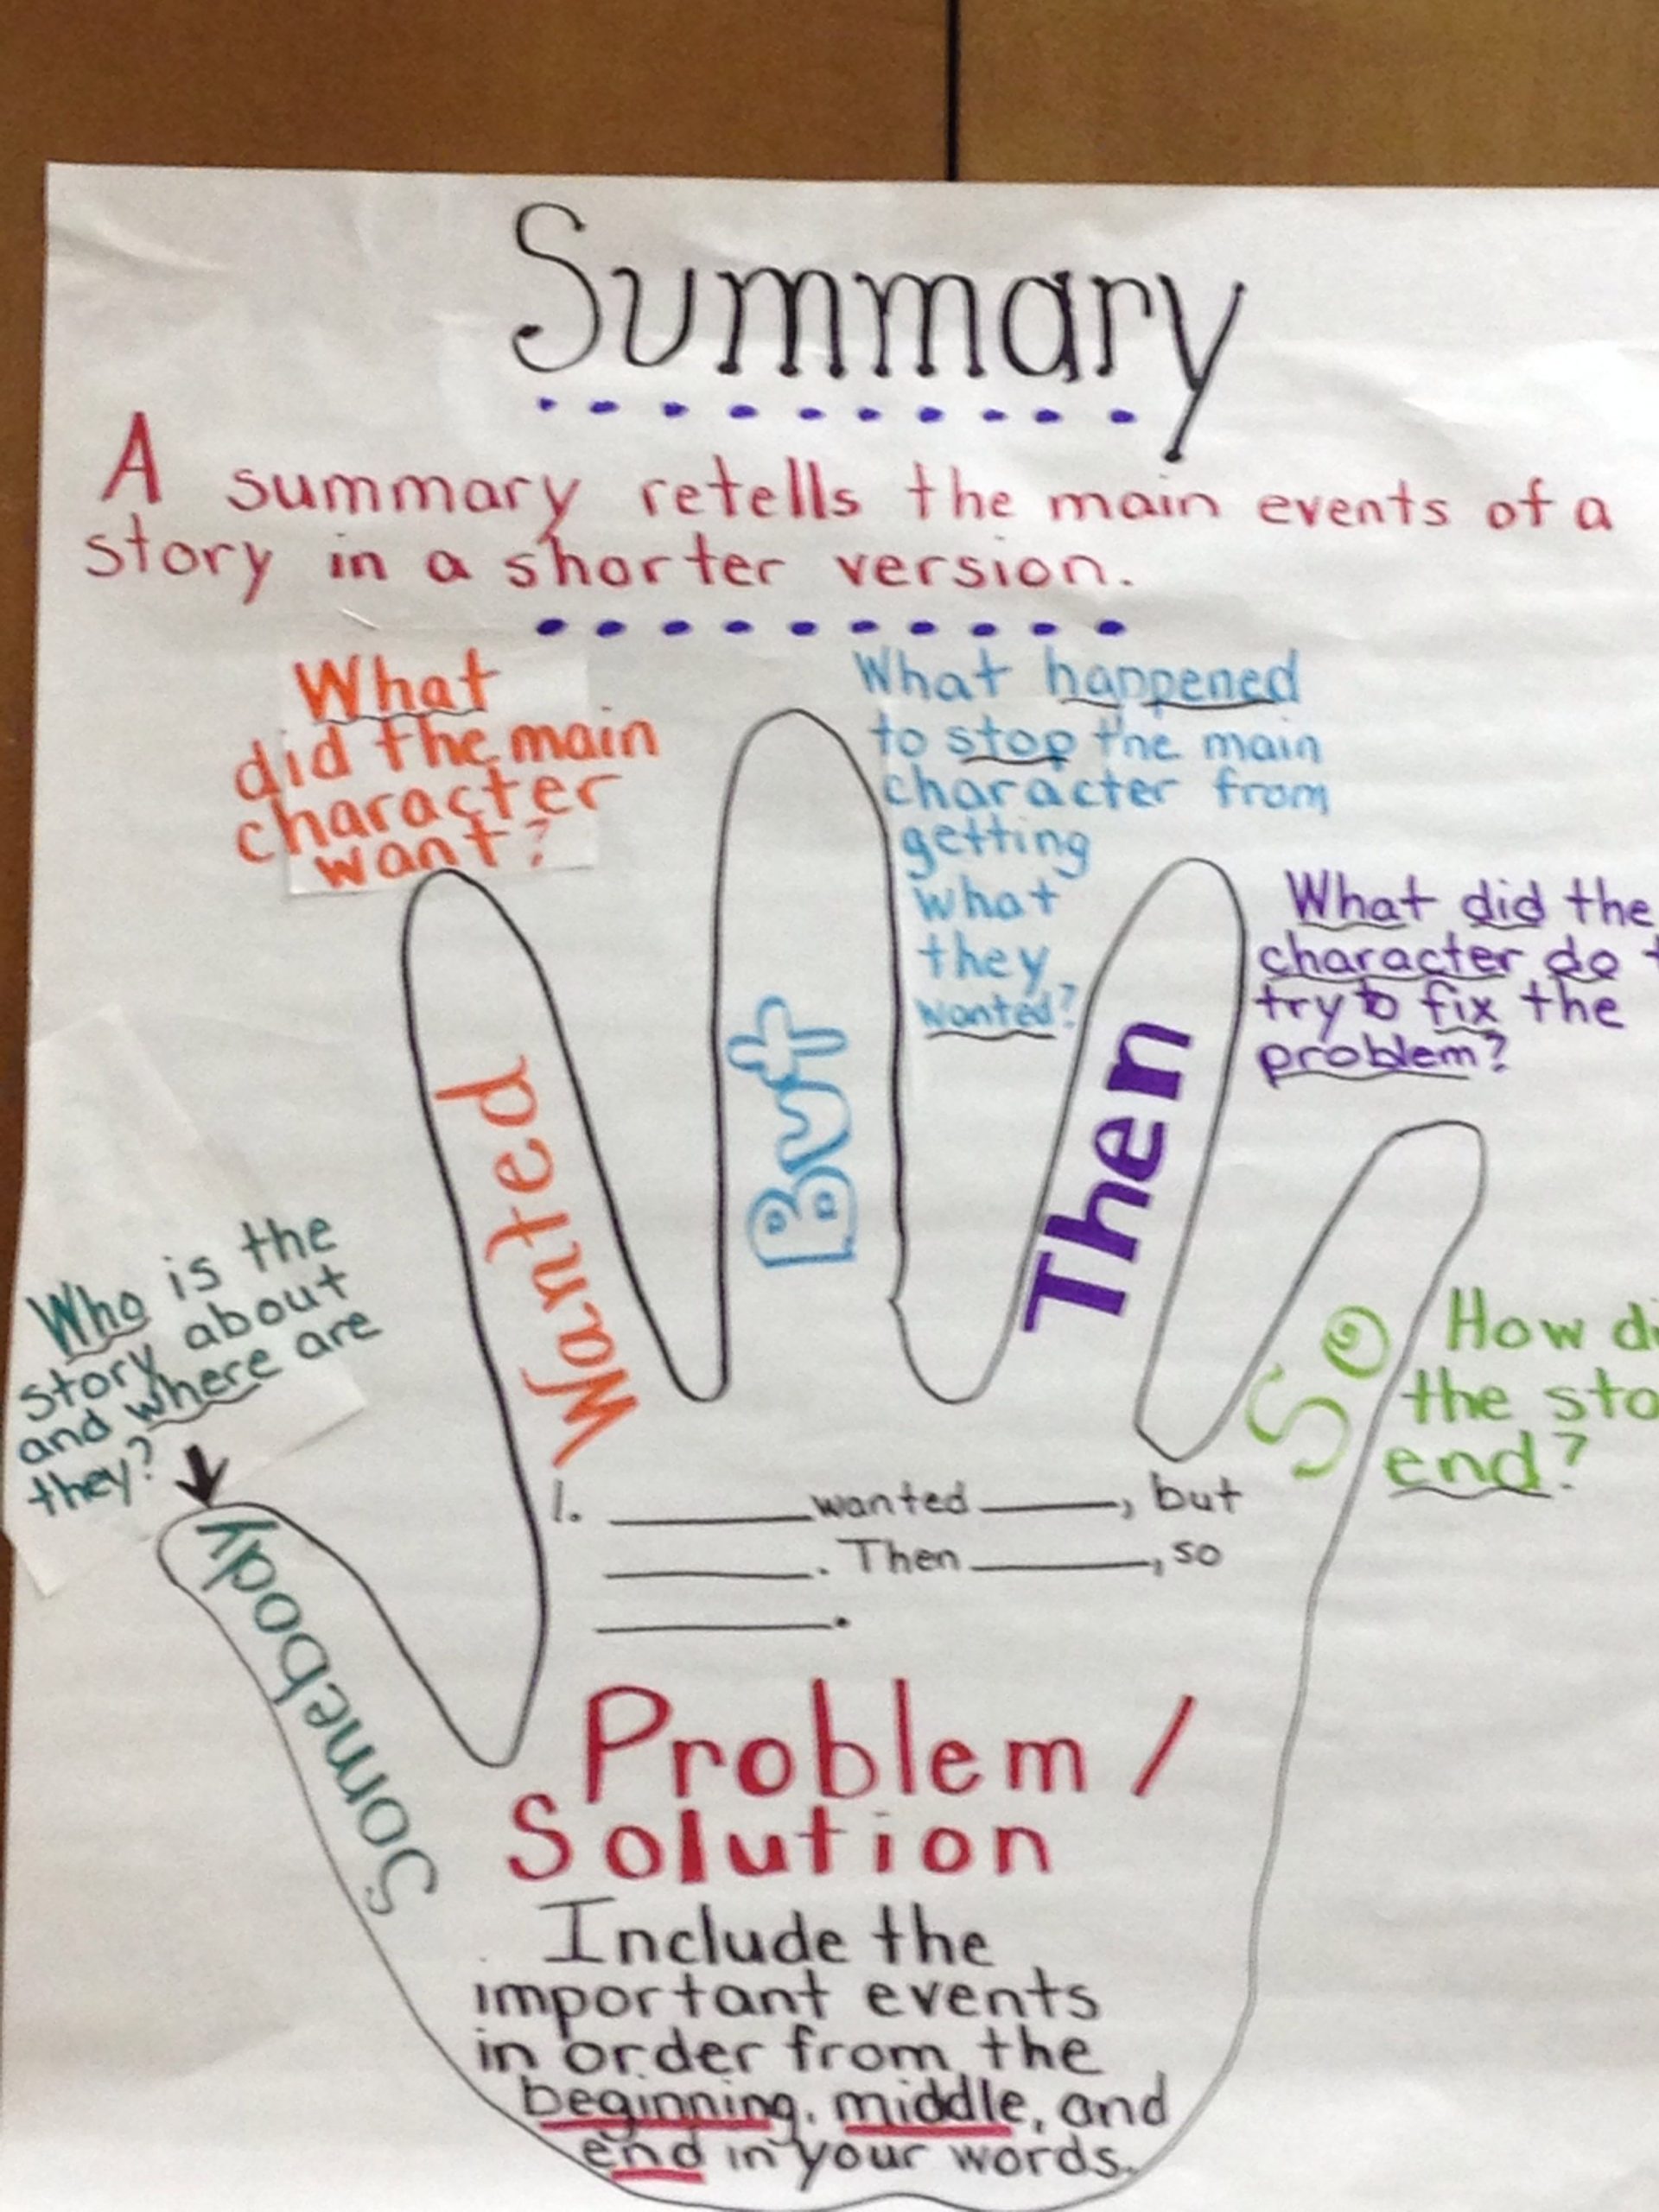 Summary
A summary retells the main events of a
story in a shorter version.
What
did the main
character
want?
What happened
to stop the main
character from
getting
what
they
wanted?
What did the
character do t
try to fix the
problem?
Who is the
story about
and where are
they?
How di
the sto
end?
Somebody
Wanted
But
Then
So
1. ______ wanted ______, but
______. Then ______, so
______.
Problem /
Solution
Include the
important events
in order from the
beginning, middle, and
end in your words.